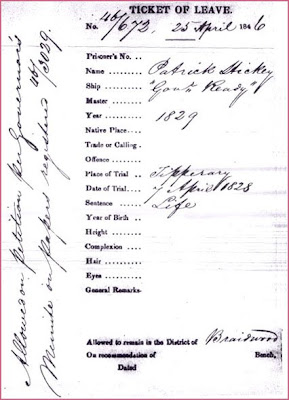 TICKET OF LEAVE.
No. 46/672. 25 April 1846
Prisoner's No.
Name Patrick Hickey
Ship "Govr. Ready"
Master
Year 1829
Native Place
Trade or Calling
Offence
Place of Trial Tipperary
Date of Trial 7 April 1828
Sentence Life
Year of Birth
Height
Complexion
Hair
Eyes
General Remarks
Allowed to remain in the District of Braidwood
On recommendation of Bench,
Dated
Allowed on petition per Governor's
Minute on papers registered 46/3029.